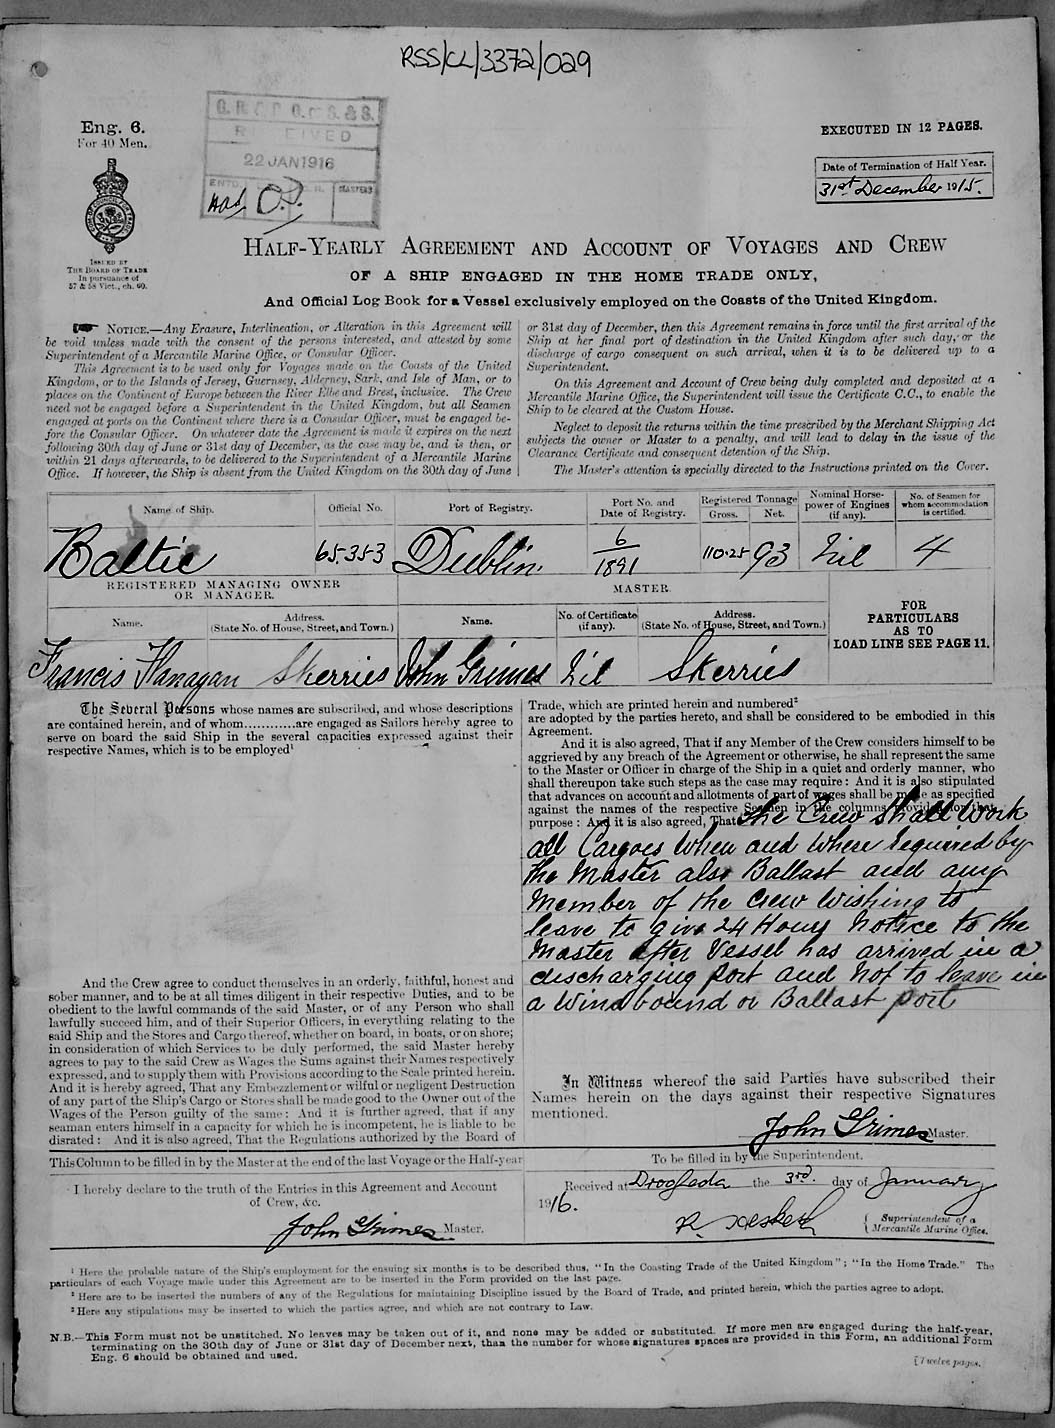 RSS/CL/3372/029
Eng. 6.
For 40 Men.
RECEIVED
22 JAN 1916
MASTERS
EXECUTED IN 12 PAGES.
Date of Termination of Half Year.
31st December 1915.
ISSUED BY
THE BOARD OF TRADE
In pursuance of
57 & 58 Vict., ch. 60.
HALF-YEARLY AGREEMENT AND ACCOUNT OF VOYAGES AND CREW
OF A SHIP ENGAGED IN THE HOME TRADE ONLY,
And Official Log Book for a Vessel exclusively employed on the Coasts of the United Kingdom.
NOTICE.—Any Erasure, Interlineation, or Alteration in this Agreement will
be void unless made with the consent of the persons interested, and attested by some
Superintendent of a Mercantile Marine Office, or Consular Officer.
This Agreement is to be used only for Voyages made on the Coasts of the United
Kingdom, or to the Islands of Jersey, Guernsey, Alderney, Sark, and Isle of Man, or to
places on the Continent of Europe between the River Elbe and Brest, inclusive. The Crew
need not be engaged before a Superintendent in the United Kingdom, but all Seamen
engaged at ports on the Continent where there is a Consular Officer, must be engaged be-
fore the Consular Officer. On whatever date the Agreement is made it expires on the next
following 30th day of June or 31st day of December, as the case may be, and is then, or
within 21 days afterwards, to be delivered to the Superintendent of a Mercantile Marine
Office. If however, the Ship is absent from the United Kingdom on the 30th day of June
or 31st day of December, then this Agreement remains in force until the first arrival of the
Ship at her final port of destination in the United Kingdom after such day, or the
discharge of cargo consequent on such arrival, when it is to be delivered up to a
Superintendent.
On this Agreement and Account of Crew being duly completed and deposited at a
Mercantile Marine Office, the Superintendent will issue the Certificate C.C., to enable the
Ship to be cleared at the Custom House.
Neglect to deposit the returns within the time prescribed by the Merchant Shipping Act
subjects the owner or Master to a penalty, and will lead to delay in the issue of the
Clearance Certificate and consequent detention of the Ship.
The Master's attention is specially directed to the Instructions printed on the Cover.
Name of Ship. Official No. Port of Registry. Port No. and Date of Registry. Registered Tonnage Gross. Net. Nominal Horse-power of Engines (if any). No. of Seamen for whom accommodation is certified.
Baltic 65.353 Dublin. 6/1891 110.25 93 Nil 4
REGISTERED MANAGING OWNER OR MANAGER. MASTER.
Name. Address. (State No. of House, Street, and Town.) Name. No. of Certificate (if any). Address. (State No. of House, Street, and Town.)
FOR PARTICULARS AS TO LOAD LINE SEE PAGE 11.
Francis Flanagan Skerries John Grimes Nil Skerries
The Several Persons whose names are subscribed, and whose descriptions
are contained herein, and of whom............are engaged as Sailors hereby agree to
serve on board the said Ship in the several capacities expressed against their
respective Names, which is to be employed¹
And the Crew agree to conduct themselves in an orderly, faithful, honest and
sober manner, and to be at all times diligent in their respective Duties, and to be
obedient to the lawful commands of the said Master, or of any Person who shall
lawfully succeed him, and of their Superior Officers, in everything relating to the
said Ship and the Stores and Cargo thereof, whether on board, in boats, or on shore;
in consideration of which Services to be duly performed, the said Master hereby
agrees to pay to the said Crew as Wages the Sums against their Names respectively
expressed, and to supply them with Provisions according to the Scale printed herein.
And it is hereby agreed, That any Embezzlement or wilful or negligent Destruction
of any part of the Ship's Cargo or Stores shall be made good to the Owner out of the
Wages of the Person guilty of the same: And it is further agreed, that if any
seaman enters himself in a capacity for which he is incompetent, he is liable to be
disrated: And it is also agreed, That the Regulations authorized by the Board of
Trade, which are printed herein and numbered²
are adopted by the parties hereto, and shall be considered to be embodied in this
Agreement.
And it is also agreed, That if any Member of the Crew considers himself to be
aggrieved by any breach of the Agreement or otherwise, he shall represent the same
to the Master or Officer in charge of the Ship in a quiet and orderly manner, who
shall thereupon take such steps as the case may require: And it is also stipulated
that advances on account and allotments of part of wages shall be made as specified
against the names of the respective Seamen in the columns provided for that
purpose: And it is also agreed, That the Crew Shall Work
all Cargoes when and where required by
the Master also Ballast and any
Member of the Crew wishing to
leave to give 24 Hours Notice to the
Master after Vessel has arrived in a
discharging port and not to leave in
a Windbound or Ballast port
In Witness whereof the said Parties have subscribed their
Names herein on the days against their respective Signatures
mentioned.
John Grimes Master.
This Column to be filled in by the Master at the end of the last Voyage or the Half-year
I hereby declare to the truth of the Entries in this Agreement and Account
of Crew, &c.
John Grimes Master.
To be filled in by the Superintendent.
Received at Drogheda the 3rd. day of January
1916.
Superintendent of a
Mercantile Marine Office.
¹ Here the probable nature of the Ship's employment for the ensuing six months is to be described thus, "In the Coasting Trade of the United Kingdom"; "In the Home Trade." The
particulars of each Voyage made under this Agreement are to be inserted in the Form provided on the last page.
² Here are to be inserted the numbers of any of the Regulations for maintaining Discipline issued by the Board of Trade, and printed herein, which the parties agree to adopt.
³ Here any stipulations may be inserted to which the parties agree, and which are not contrary to Law.
N.B.—This Form must not be unstitched. No leaves may be taken out of it, and none may be added or substituted. If more men are engaged during the half-year,
terminating on the 30th day of June or 31st day of December next, than the number for whose signatures spaces are provided in this Form, an additional Form
Eng. 6 should be obtained and used.
[Twelve pages.